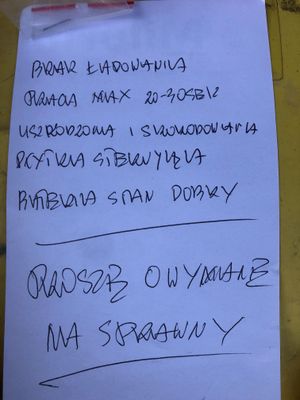 BRAK ŁADOWANIA
PRACA MAX 20-30SEK
USZKODZONA I SKORODOWANA
PŁYTKA STERUJĄCA
BATERIA STAN DOBRY
PROSZĘ O WYMIANĘ
NA SPRAWNY